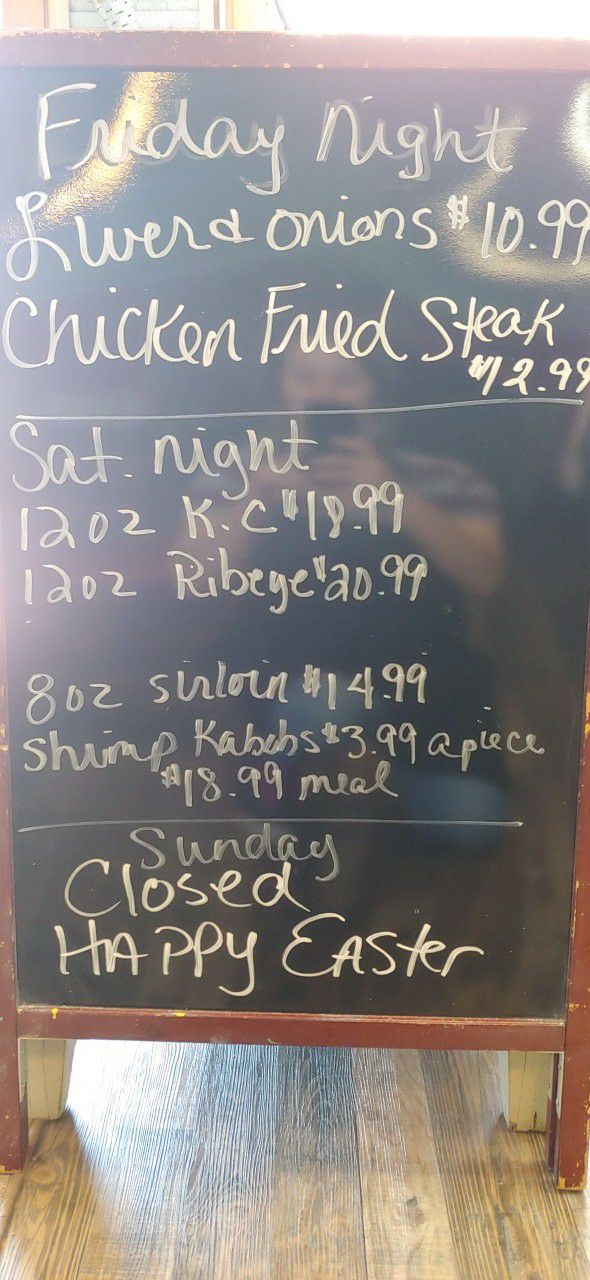 Friday Night
Liver & onions $10.99
Chicken Fried Steak
$12.99
Sat. night
12oz K.C $18.99
12oz Ribeye $20.99
8oz sirloin $14.99
Shrimp Kabobs $3.99 apiece
$18.99 meal
Sunday
Closed
HAPPY EASter